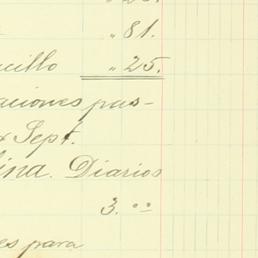 „ 81.
cillo „ 25.
aciones pas-
Sept.
ina. Diarios
3. ⁰⁰
es para